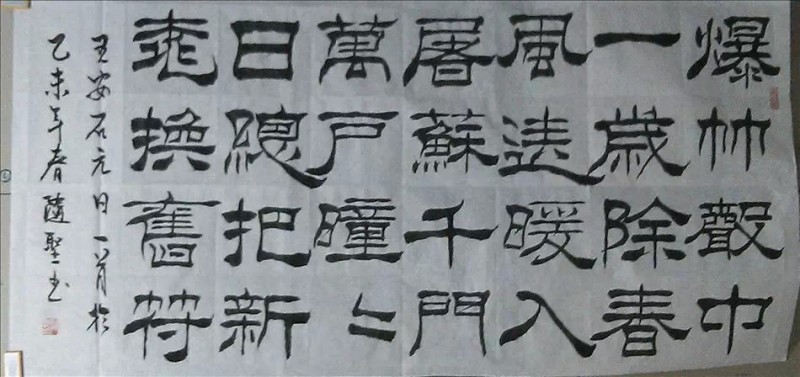 爆竹聲中
一歲除春
風送暖入
屠蘇千門
萬戶曈〻
日總把新
桃換舊符
王安石元日一首於
乙未年春隨聖书